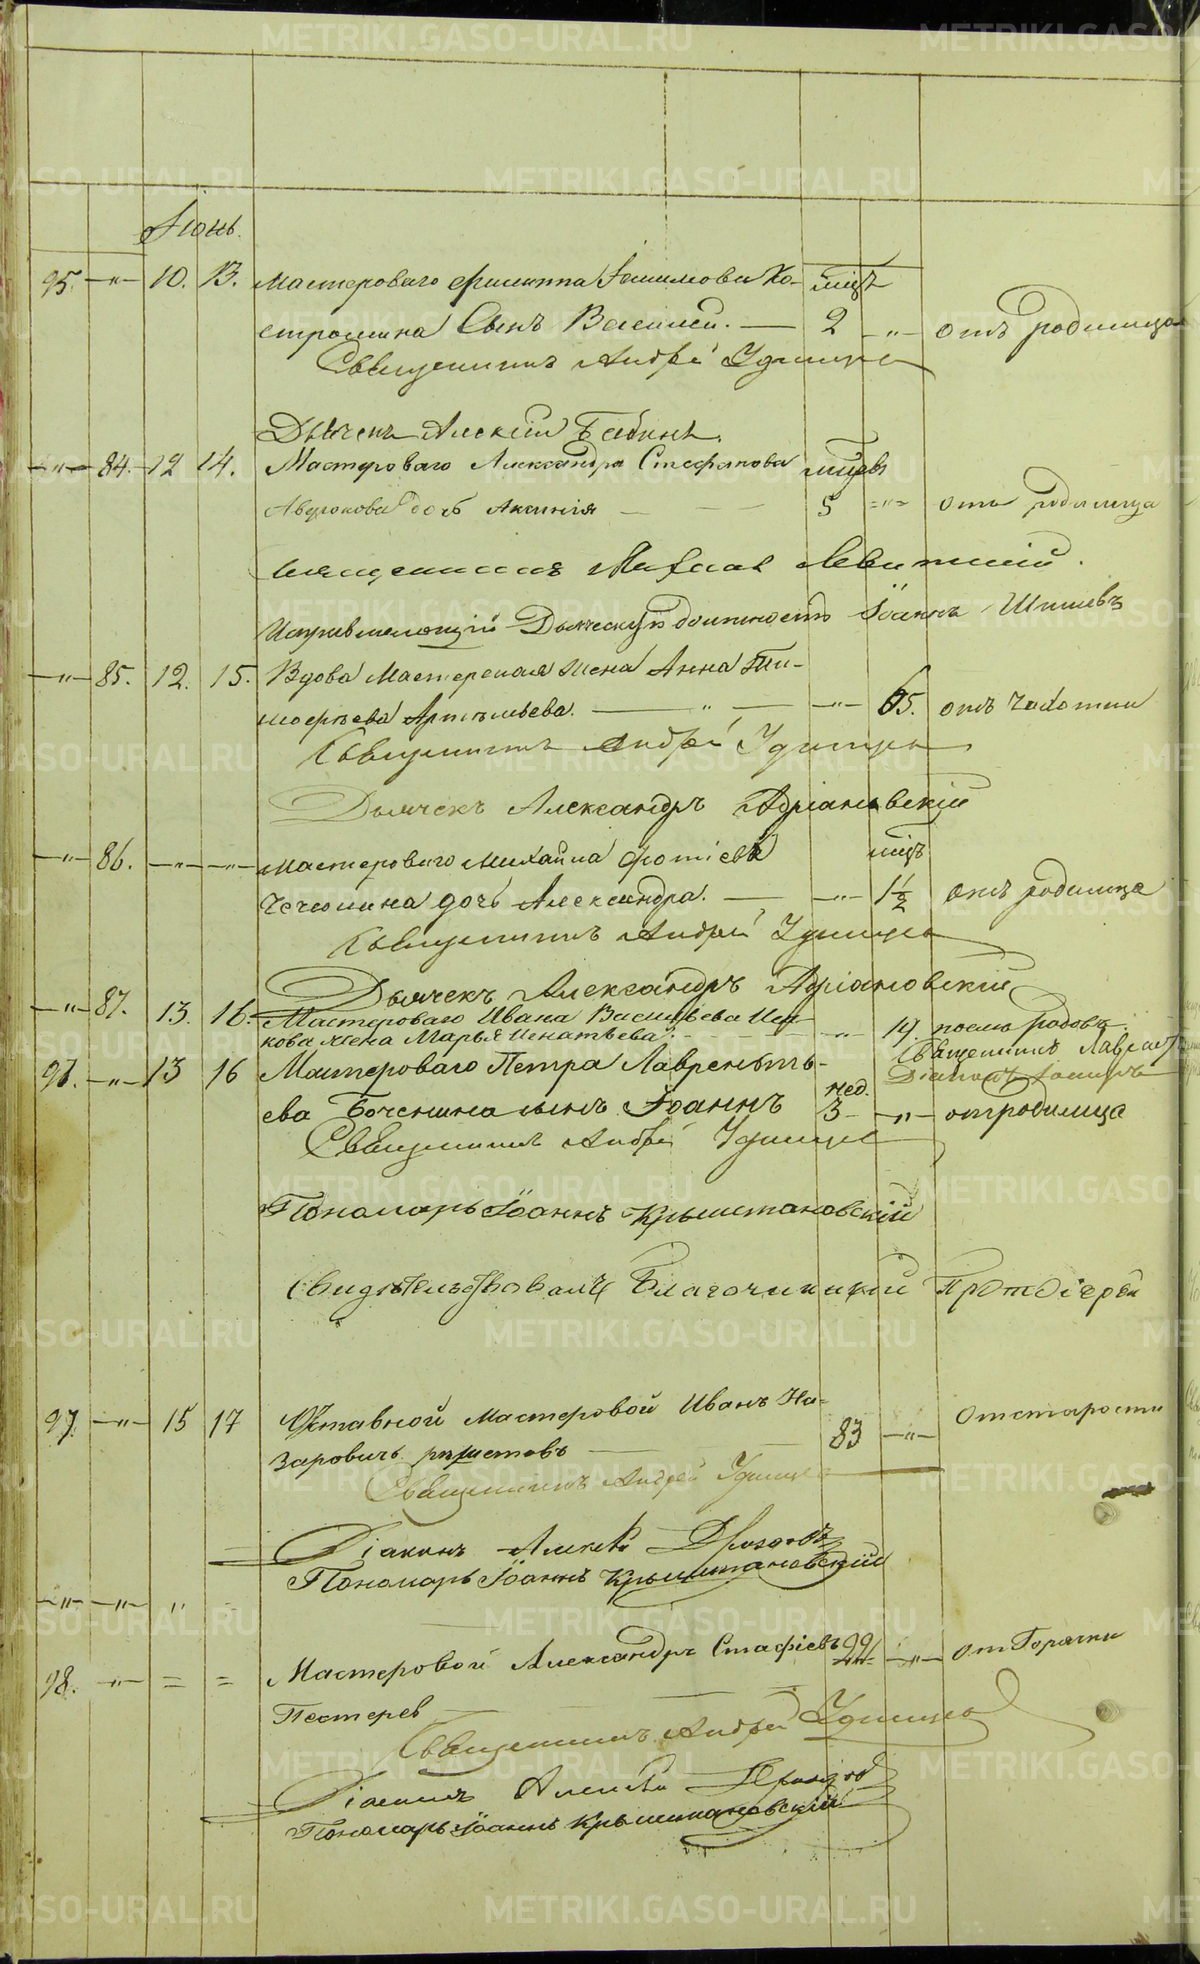 METRIKI.GASO-URAL.RU
Июнь.
95. —"— 10. 13. Мастероваго Филиппа Ко- мцъ
стромина Сынъ Василей. — 2 —"— отъ родимца
Священникъ Андрей Удинцевъ
Дьячекъ Алексій Бабинъ.
—"— 84. 12 14. Мастероваго Александра Стефанова мцевъ
Авдюкова дочь Аксинія 5 ="= отъ родимца
Священникъ Левитскій.
Исправляющій Дьяческую должность Іоаннъ Шишевъ
—"— 85. 12. 15. Вдова Мастерская жена Анна Ти-
моѳѣева Артемьева. —"— —"— 65. отъ чахотки
Священникъ Андрей Удинцевъ
Дьячекъ Александръ Адріановскій
—"— 86. —"— —"— Мастероваго Михайла Фотіева мцъ
Чечюлина дочь Александра. — —"— 1½ отъ родимца
Священникъ Андрей Удинцевъ
Дьячекъ Александръ Адріановскій
—"— 87. 13. 16. Мастероваго Ивана Васильева
кова жена Марья Игнатьева —"— послѣ родовъ.
Священникъ
Діаконъ
96. —"— 13 16 Мастероваго Петра Лавренть-
ева сынъ Іоаннъ нед. 3 —"— отъ родимца
Священникъ Андрей Удинцевъ
Пономарь Іоаннъ Крыштановскій
Свидѣтельствовалъ Благочинный Протоіерей
97. —"— 15 17 Отставной Мастеровой Иванъ На-
заровичь 83 —"— Отъ старости
Священникъ Андрей Удинцевъ
Діаконъ Алексѣй
Пономарь Іоаннъ Крыштановскій
—"— —"— " =
98. —"— = = Мастеровой Александръ 22 —"— отъ Горячки
Пестерев
Священникъ Андрей Удинцевъ
Діаконъ Алексѣй
Пономарь Іоаннъ Крыштановскій